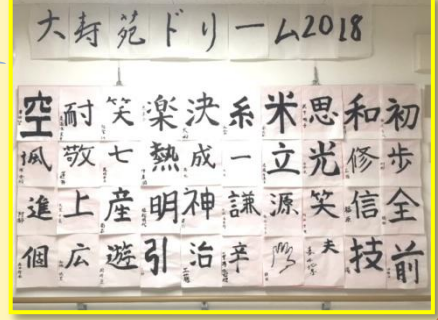 大寿苑ドリーム2018
空 耐 笑 楽 決 糸 米 思 和 初
颯 敬 七 熱 成 一 立 光 修 歩
進 上 産 明 神 謙 源 笑 信 全
個 広 遊 引 治 幸 夫 技 前